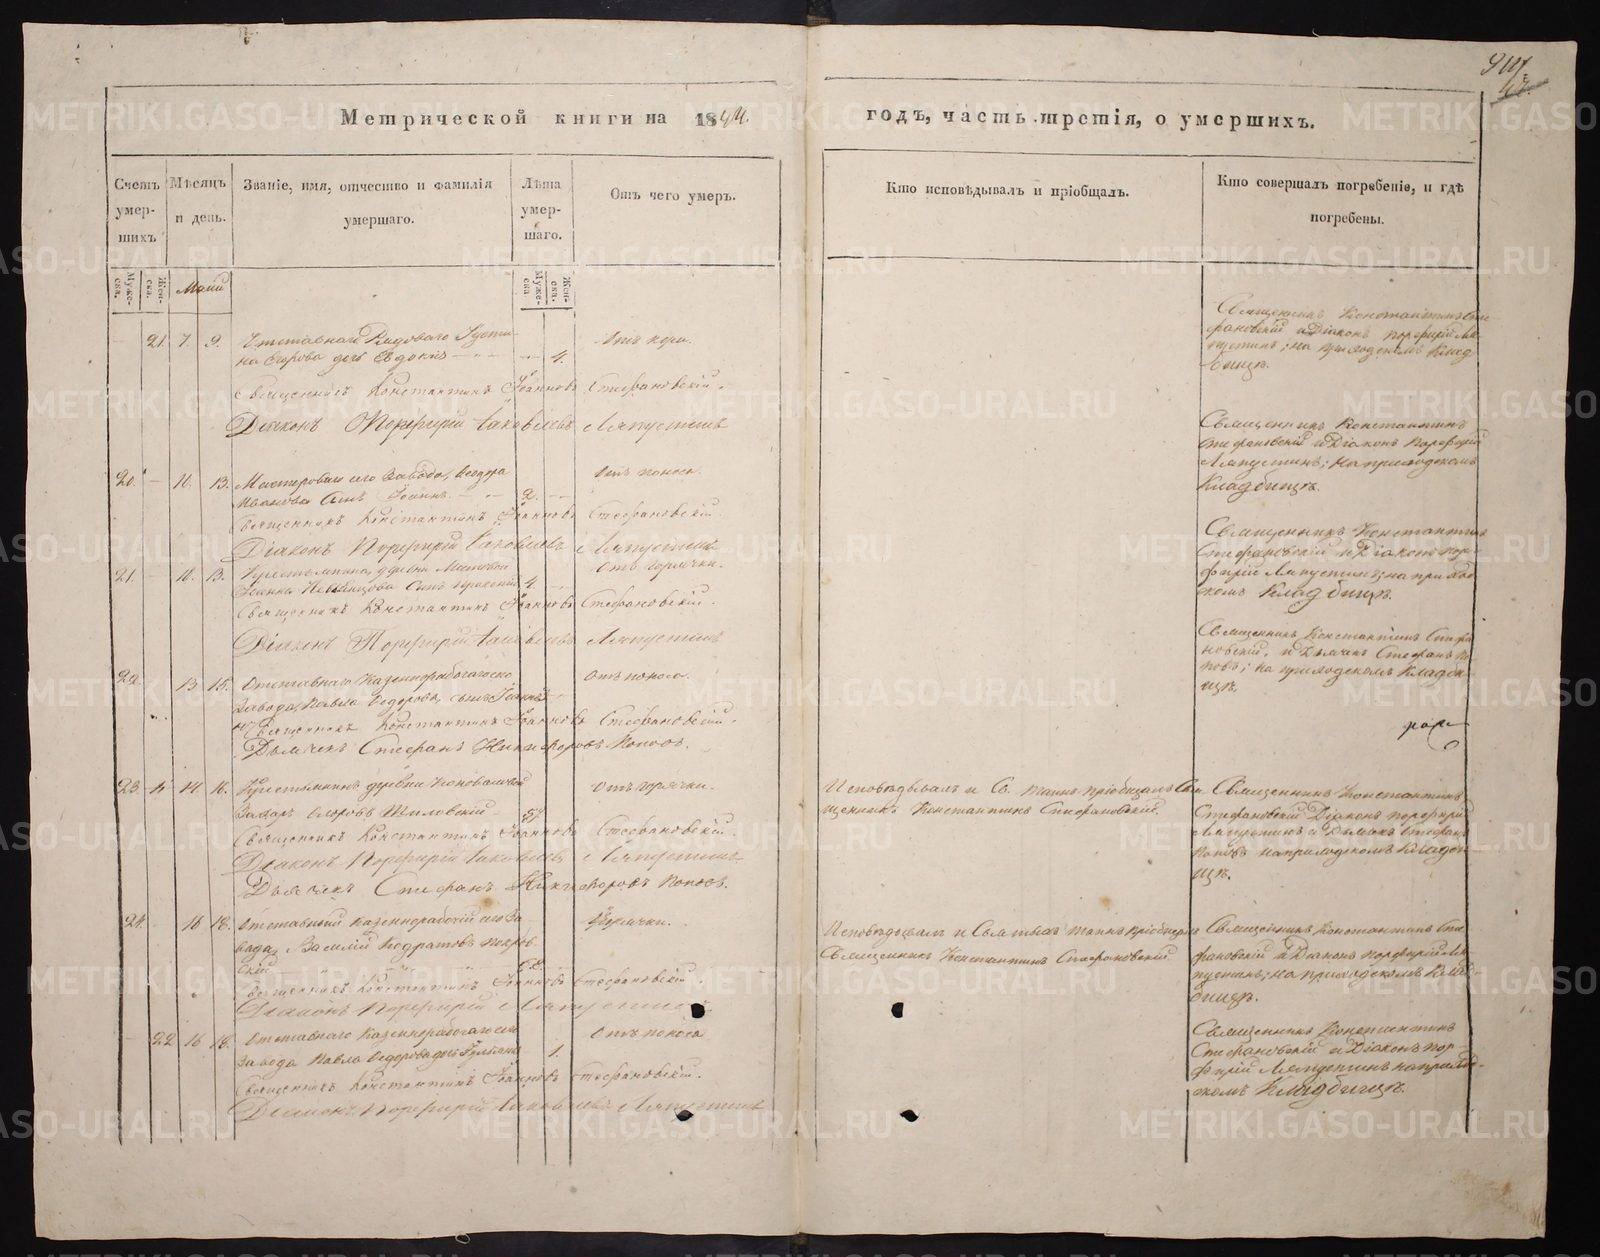 Метрической книги на 1844.
годъ, часть третія, о умершихъ.
Счетъ умер-шихъ
Мѣсяцъ и день.
Званіе, имя, отчество и фамилія умершаго.
Лѣта умер-шаго.
Отъ чего умеръ.
Кто исповѣдывалъ и пріобщалъ.
Кто совершалъ погребеніе, и гдѣ погребены.
Муже-ска.
Жен-ска.
Маій
Муже-ска
Жен-ска.
21. 7. 9. Отставнаго Рядоваго
на Егорова дочь Евдокія 4. Отъ кори.
Священникъ Константинъ Іоанновъ Стефановскій.
Діаконъ Порфирій Іаковлевъ Ляпустинъ
Священникъ Константинъ Сте-
фановскій и Діаконъ Порфирій Ля-
пустинъ; на приходскомъ Клад-
бищѣ.
20. 11. 13. Мастероваго сего Завода, Ѳеодора
Иванова Сынъ Іоаннъ. 2. Отъ поноса.
Священникъ Константинъ Іоанновъ Стефановскій.
Діаконъ Порфирій Іаковлевъ Ляпустинъ
Священникъ Константинъ
Стефановскій и Діаконъ Порфирій
Ляпустинъ; на приходскомъ
Кладбищѣ.
21. 11. 13. Крестьянина деревни
Іоанна Сынъ 4. Отъ горячки.
Священникъ Константинъ Іоанновъ Стефановскій.
Діаконъ Порфирій Іаковлевъ Ляпустинъ
Священникъ Константинъ
Стефановскій и Діаконъ Пор-
фирій Ляпустинъ; на приход-
скомъ Кладбищѣ.
22. 13. 15. Отставнаго Казеннорабочаго сего
Завода, Павла Ѳедорова, сынъ Іоаннъ Отъ поноса.
Священникъ Константинъ Іоанновъ Стефановскій.
Дьячекъ Стефанъ Никифоровъ Поповъ.
Священникъ Константинъ Стефа-
новскій, и Дьячекъ Стефанъ По-
повъ; на приходскомъ Кладби-
щѣ.
23. 14. 16. Крестьянинъ деревни
Захаръ Егоровъ 57 Отъ горячки.
Священникъ Константинъ Іоанновъ Стефановскій.
Діаконъ Порфирій Іаковлевъ Ляпустинъ
Дьячекъ Стефанъ Никифоровъ Поповъ.
Исповѣдывалъ и Св. Таинъ пріобщалъ Свя-
щенникъ Константинъ Стефановскій.
Священникъ Константинъ
Стефановскій Діаконъ Порфирій
Ляпустинъ и Дьячекъ Стефанъ
Поповъ на приходскомъ Кладби-
щѣ.
24. 16 18. Отставный Казеннорабочій сего За-
вода, Василій Кодратовъ Покров-
скій Горячки.
Священникъ Константинъ Іоанновъ Стефановскій.
Діаконъ Порфирій Ляпустинъ
Исповѣдывалъ и Святыхъ Таинъ пріобщалъ
Священникъ Константинъ Стефановскій
Священникъ Константинъ Сте-
фановскій и Діаконъ Порфирій Ля-
пустинъ; на приходскомъ Клад-
бищѣ.
22 16 18. Отставнаго Казеннорабочаго сего
Завода Павла Ѳедорова дочь 1. Отъ поноса
Священникъ Константинъ Іоанновъ Стефановскій.
Діаконъ Порфирій Іаковлевъ Ляпустинъ
Священникъ Константинъ
Стефановскій и Діаконъ Пор-
фирій Ляпустинъ на приход-
скомъ Кладбищѣ.
METRIKI.GASO-URAL.RU